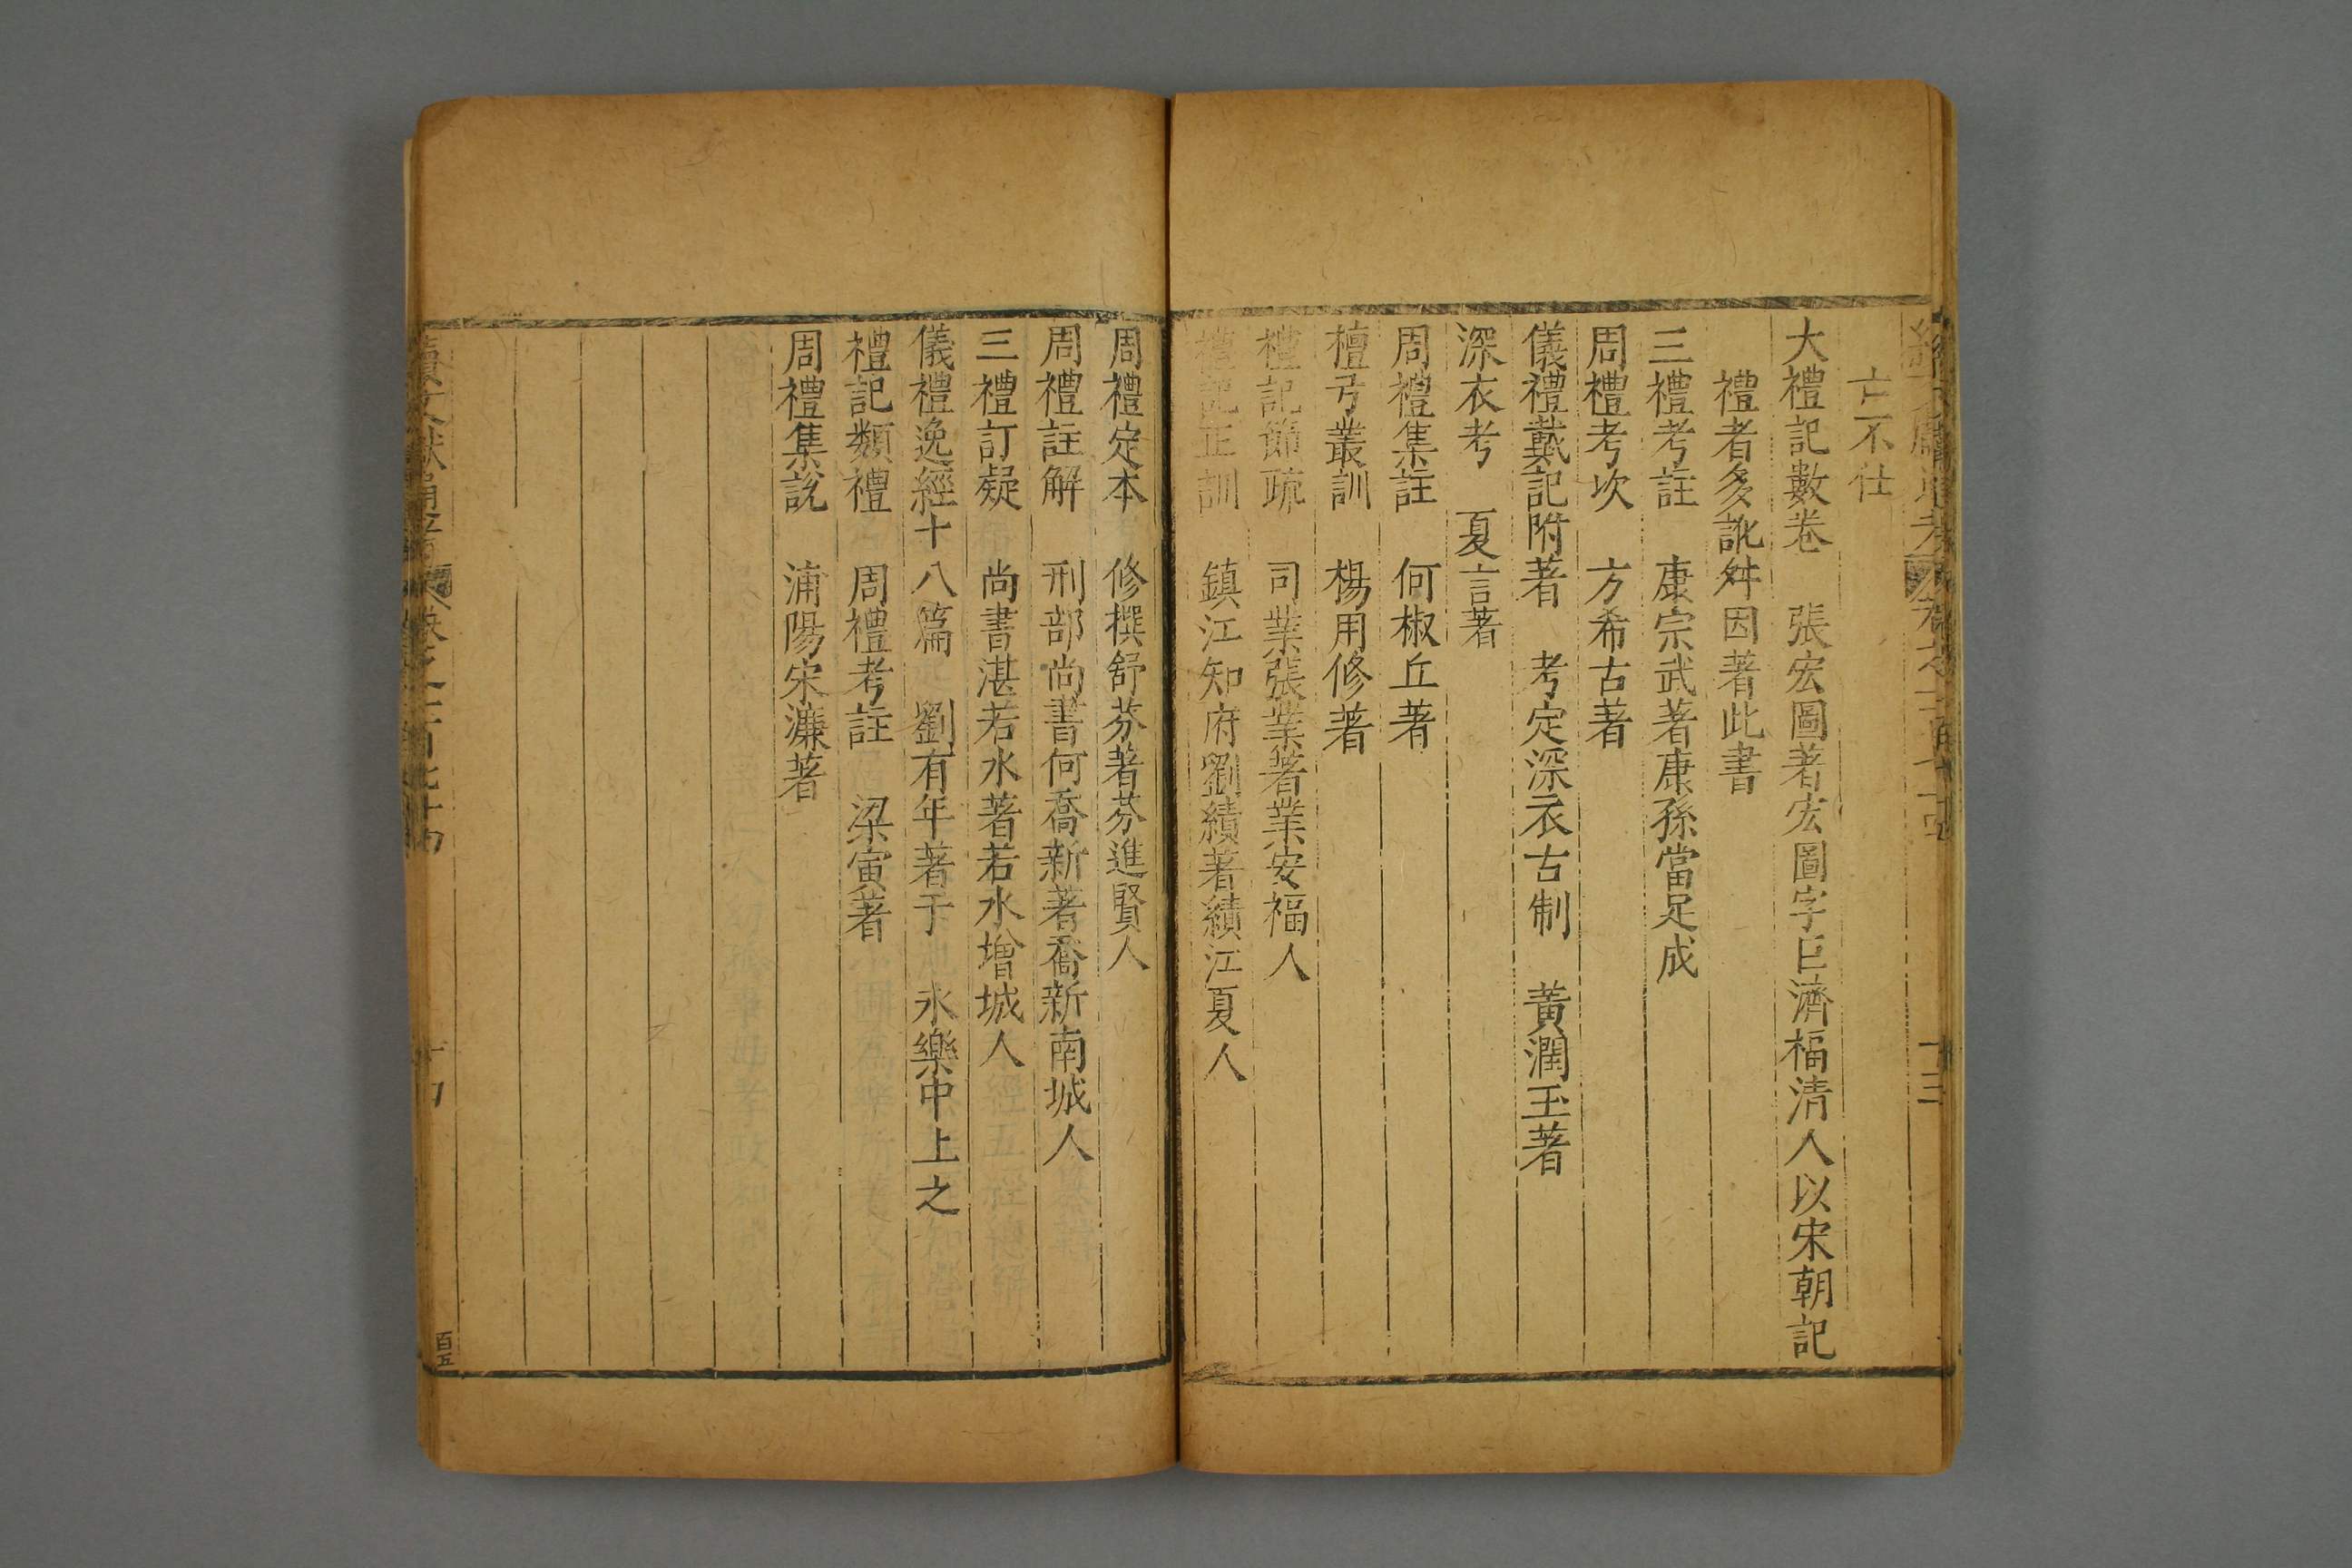 亡不仕
大禮記數卷　張宏圖著宏圖字巨濟福清人以宋朝記
禮者多訛舛因著此書
三禮考註　康宗武著康孫當足成
周禮考次　方希古著
儀禮戴記附著　考定深衣古制　黃潤玉著
深衣考　夏言著
周禮集註　何椒丘著
檀弓叢訓　楊用修著
禮記節疏　司業張業著業安福人
禮記正訓　鎮江知府劉績著績江夏人
十三
周禮定本　修撰舒芬著芬進賢人
周禮註解　刑部尚書何喬新著喬新南城人
三禮訂疑　尚書湛若水著若水增城人
儀禮逸經十八篇　劉有年著于　永樂中上之
禮記類禮　周禮考註　梁寅著
周禮集說　浦陽宋濂著
百五